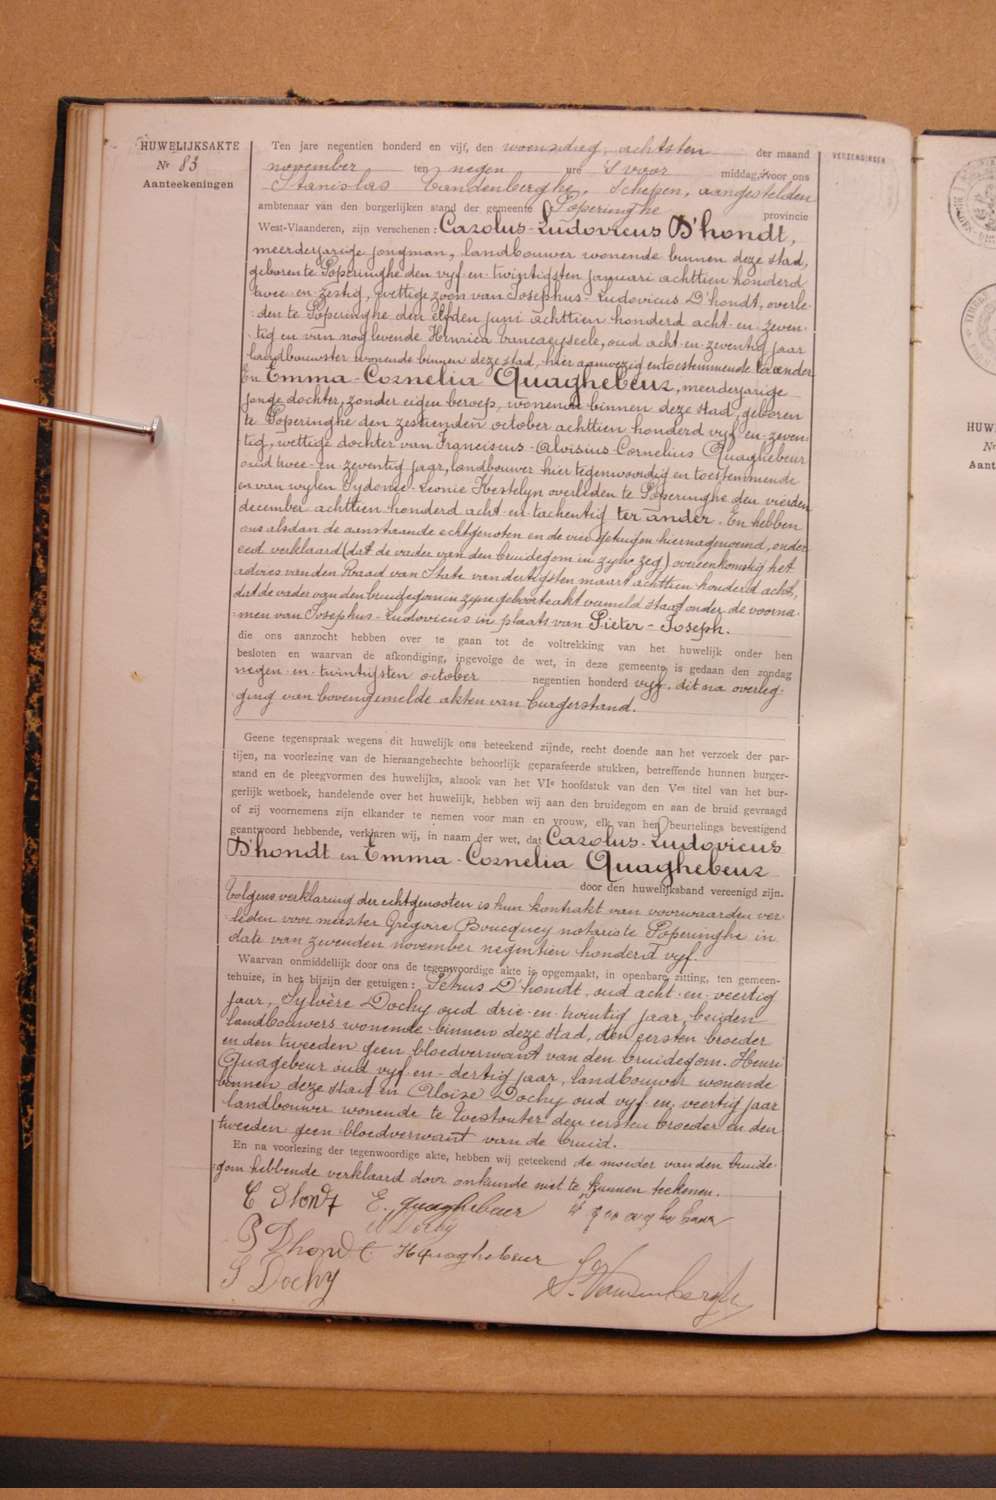 HUWELIJKSAKTE
Nr 83
Aanteekeningen
VERZENDINGEN
Ten jare negentien honderd en vijf, den woensdag, achtsten der maand
november ten negen ure 's voor middags, voor ons
Stanislas Vandenberghe, Schepen, aangestelden
ambtenaar van den borgerlijken stand der gemeente Poperinghe provincie
West-Vlaanderen, zijn verschenen : Carolus-Ludovicus D'hondt,
meerderjarige jongman, landbouwer wonende binnen deze stad,
geboren te Poperinghe den vyf-en-twintigsten januari achttien honderd
twee-en-zestig, wettige zoon van Josephus-Ludovicus D'hondt, overle-
den te Poperinghe den elfden juni achttien honderd acht-en-zeven-
tig en van nog levende Henrica Vancaeyseele, oud acht-en-zeventig jaar
landbouwster wonende binnen deze stad, hier aanwezig en toestemmende ter eender
En Emma-Cornelia Quaghebeur, meerderjarige
jonge dochter, zonder eigen beroep, wonende binnen deze stad, geboren
te Poperinghe den zestienden october achttien honderd vyf-en-zeven-
tig, wettige dochter van Franciscus-Aloisius-Cornelius Quaghebeur
oud twee-en-zeventig jaar, landbouwer hier tegenwoordig en toestemmende
en van wylen Sydonie-Leonie Hestelyn overleden te Poperinghe den vierden
december achttien honderd acht-en-tachentig ter ander. En hebben
ons alsdan de aanstaande echtgenoten en de vier getuigen hiernagenoemd, onder
eed verklaard (dat de vader van den bruidegom in zyne zeg) overeenkomstig het
advies van den Raad van State van dertigsten maart achttien honderd acht,
dat de vader van den bruidegom in zyne geboorteakt vermeld staat onder de voorna-
men van Josephus-Ludovicus in plaats van Pieter-Joseph.
die ons aanzocht hebben over te gaan tot de voltrekking van het huwelijk onder hen
besloten en waarvan de afkondiging, ingevolge de wet, in deze gemeente is gedaan den zondag
negen-en-twintigsten october negentien honderd vyf, dit na overleg-
ging van bovengemelde akten van burgerstand.
Geene tegenspraak wegens dit huwelijk ons beteekend zijnde, recht doende aan het verzoek der par-
tijen, na voorlezing van de hieraangehechte behoorlijk geparafeerde stukken, betreffende hunnen burger-
stand en de pleegvormen des huwelijks, alsook van het VIe hoofdstuk van den Ven titel van het bur-
gerlijk wetboek, handelende over het huwelijk, hebben wij aan den bruidegom en aan de bruid gevraagd
of zij voornemens zijn elkander te nemen voor man en vrouw, elk van hen beurtelings bevestigend
geantwoord hebbende, verklaren wij, in naam der wet, dat Carolus-Ludovicus
D'hondt en Emma-Cornelia Quaghebeur
door den huwelijksband vereenigd zijn.
Volgens verklaring der echtgenooten is hun kontrakt van voorwaarden ver-
leden voor meester Gregoire Boucquey notaris te Poperinghe in
date van zevenden november negentien honderd vyf.
Waarvan onmiddelijk door ons de tegenwoordige akte is opgemaakt, in openbare zitting, ten gemeen-
tehuize, in het bijzijn der getuigen : Petrus D'hondt, oud acht-en-veertig
jaar, Sylvère Dochy oud drie-en-twintig jaar, beiden
landbouwers wonende binnen deze stad, den eersten broeder
en den tweeden geen bloedverwant van den bruidegom. Henri
Quagebeur oud vyf-en-dertig jaar, landbouwer wonende
binnen deze stad en Aloïse Dochy oud vyf-en-veertig jaar
landbouwer wonende te Westouter den eersten broeder en den
tweeden geen bloedverwant van de bruid.
En na voorlezing der tegenwoordige akte, hebben wij geteekend de moeder van den bruide-
gom hebbende verklaard door onkunde niet te kunnen teekenen.
C Dhondt E. Quaghebeur
A Dochy
P Dhondt H Quaghebeur
S Dochy St. Vandenberghe
HUW
Nr
Aant